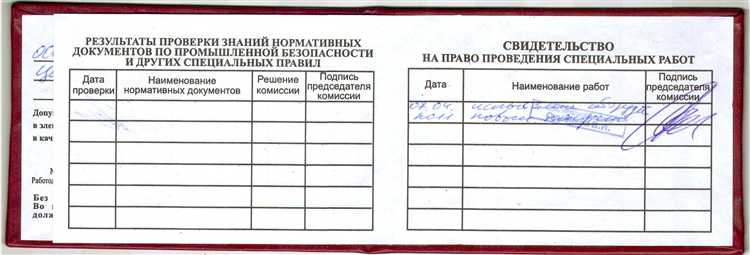 РЕЗУЛЬТАТЫ ПРОВЕРКИ ЗНАНИЙ НОРМАТИВНЫХ
ДОКУМЕНТОВ ПО ПРОМЫШЛЕННОЙ БЕЗОПАСНОСТИ
И ДРУГИХ СПЕЦИАЛЬНЫХ ПРАВИЛ
Дата проверки
Наименование нормативных документов
Решение комиссии
Подпись председателя комиссии
СВИДЕТЕЛЬСТВО
НА ПРАВО ПРОВЕДЕНИЯ СПЕЦИАЛЬНЫХ РАБОТ
Дата
Наименование работ
Подпись председателя комиссии
07.04.
в эле
в кач
Работод
Без
Во
долж